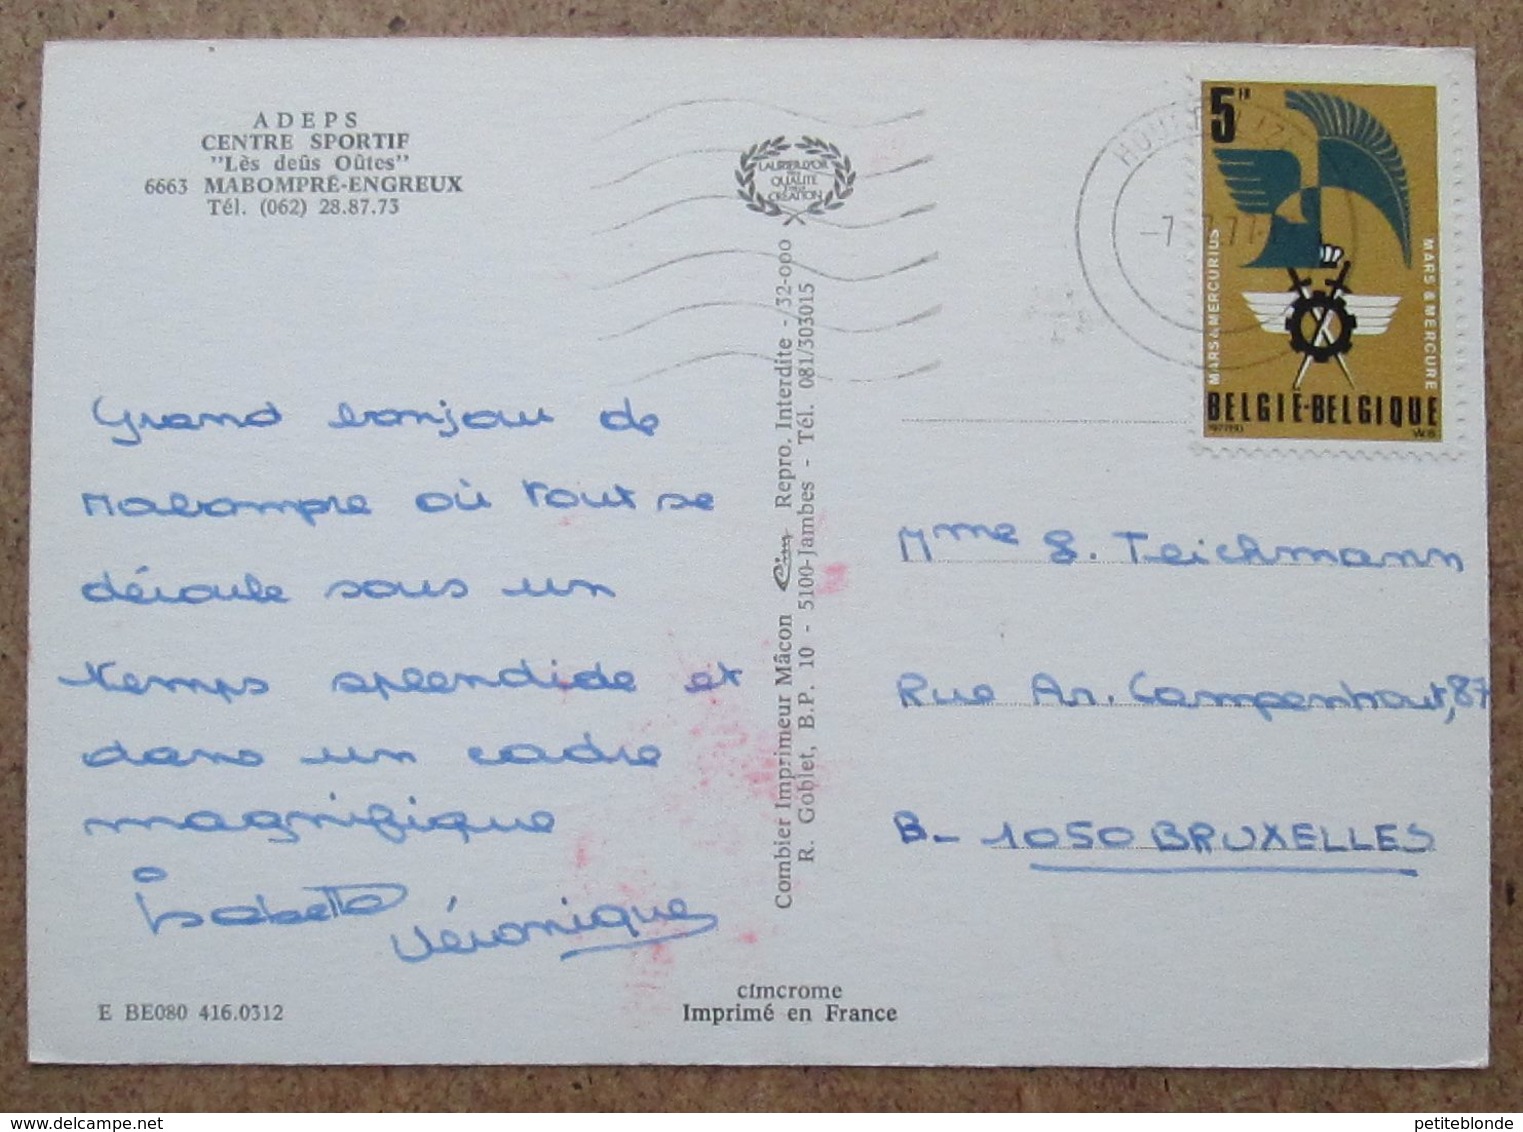 ADEPS
CENTRE SPORTIF
"Lès deûs Oûtes"
6663 MABOMPRÉ-ENGREUX
Tél. (062) 28.87.73
LAURIER D'OR
DE
QUALITÉ
CRÉATION
5 FR
MARS & MERCURIUS
MARS & MERCURE
BELGIË-BELGIQUE
Grand bonjour de
Mabompre où tout se
déroule sous un
temps splendide et
dans un cadre
magnifique
Isabelle
Véronique
Combier Imprimeur Mâcon Cim Repro. Interdite - 32-000
R. Goblet, B.P. 10 - 5100-Jambes - Tél. 081/303015
Mme S. Teichmann
Rue An. Campenhout, 87
B- 1050 BRUXELLES
E BE080 416.0312
cimcrome
Imprimé en France
petiteblonde